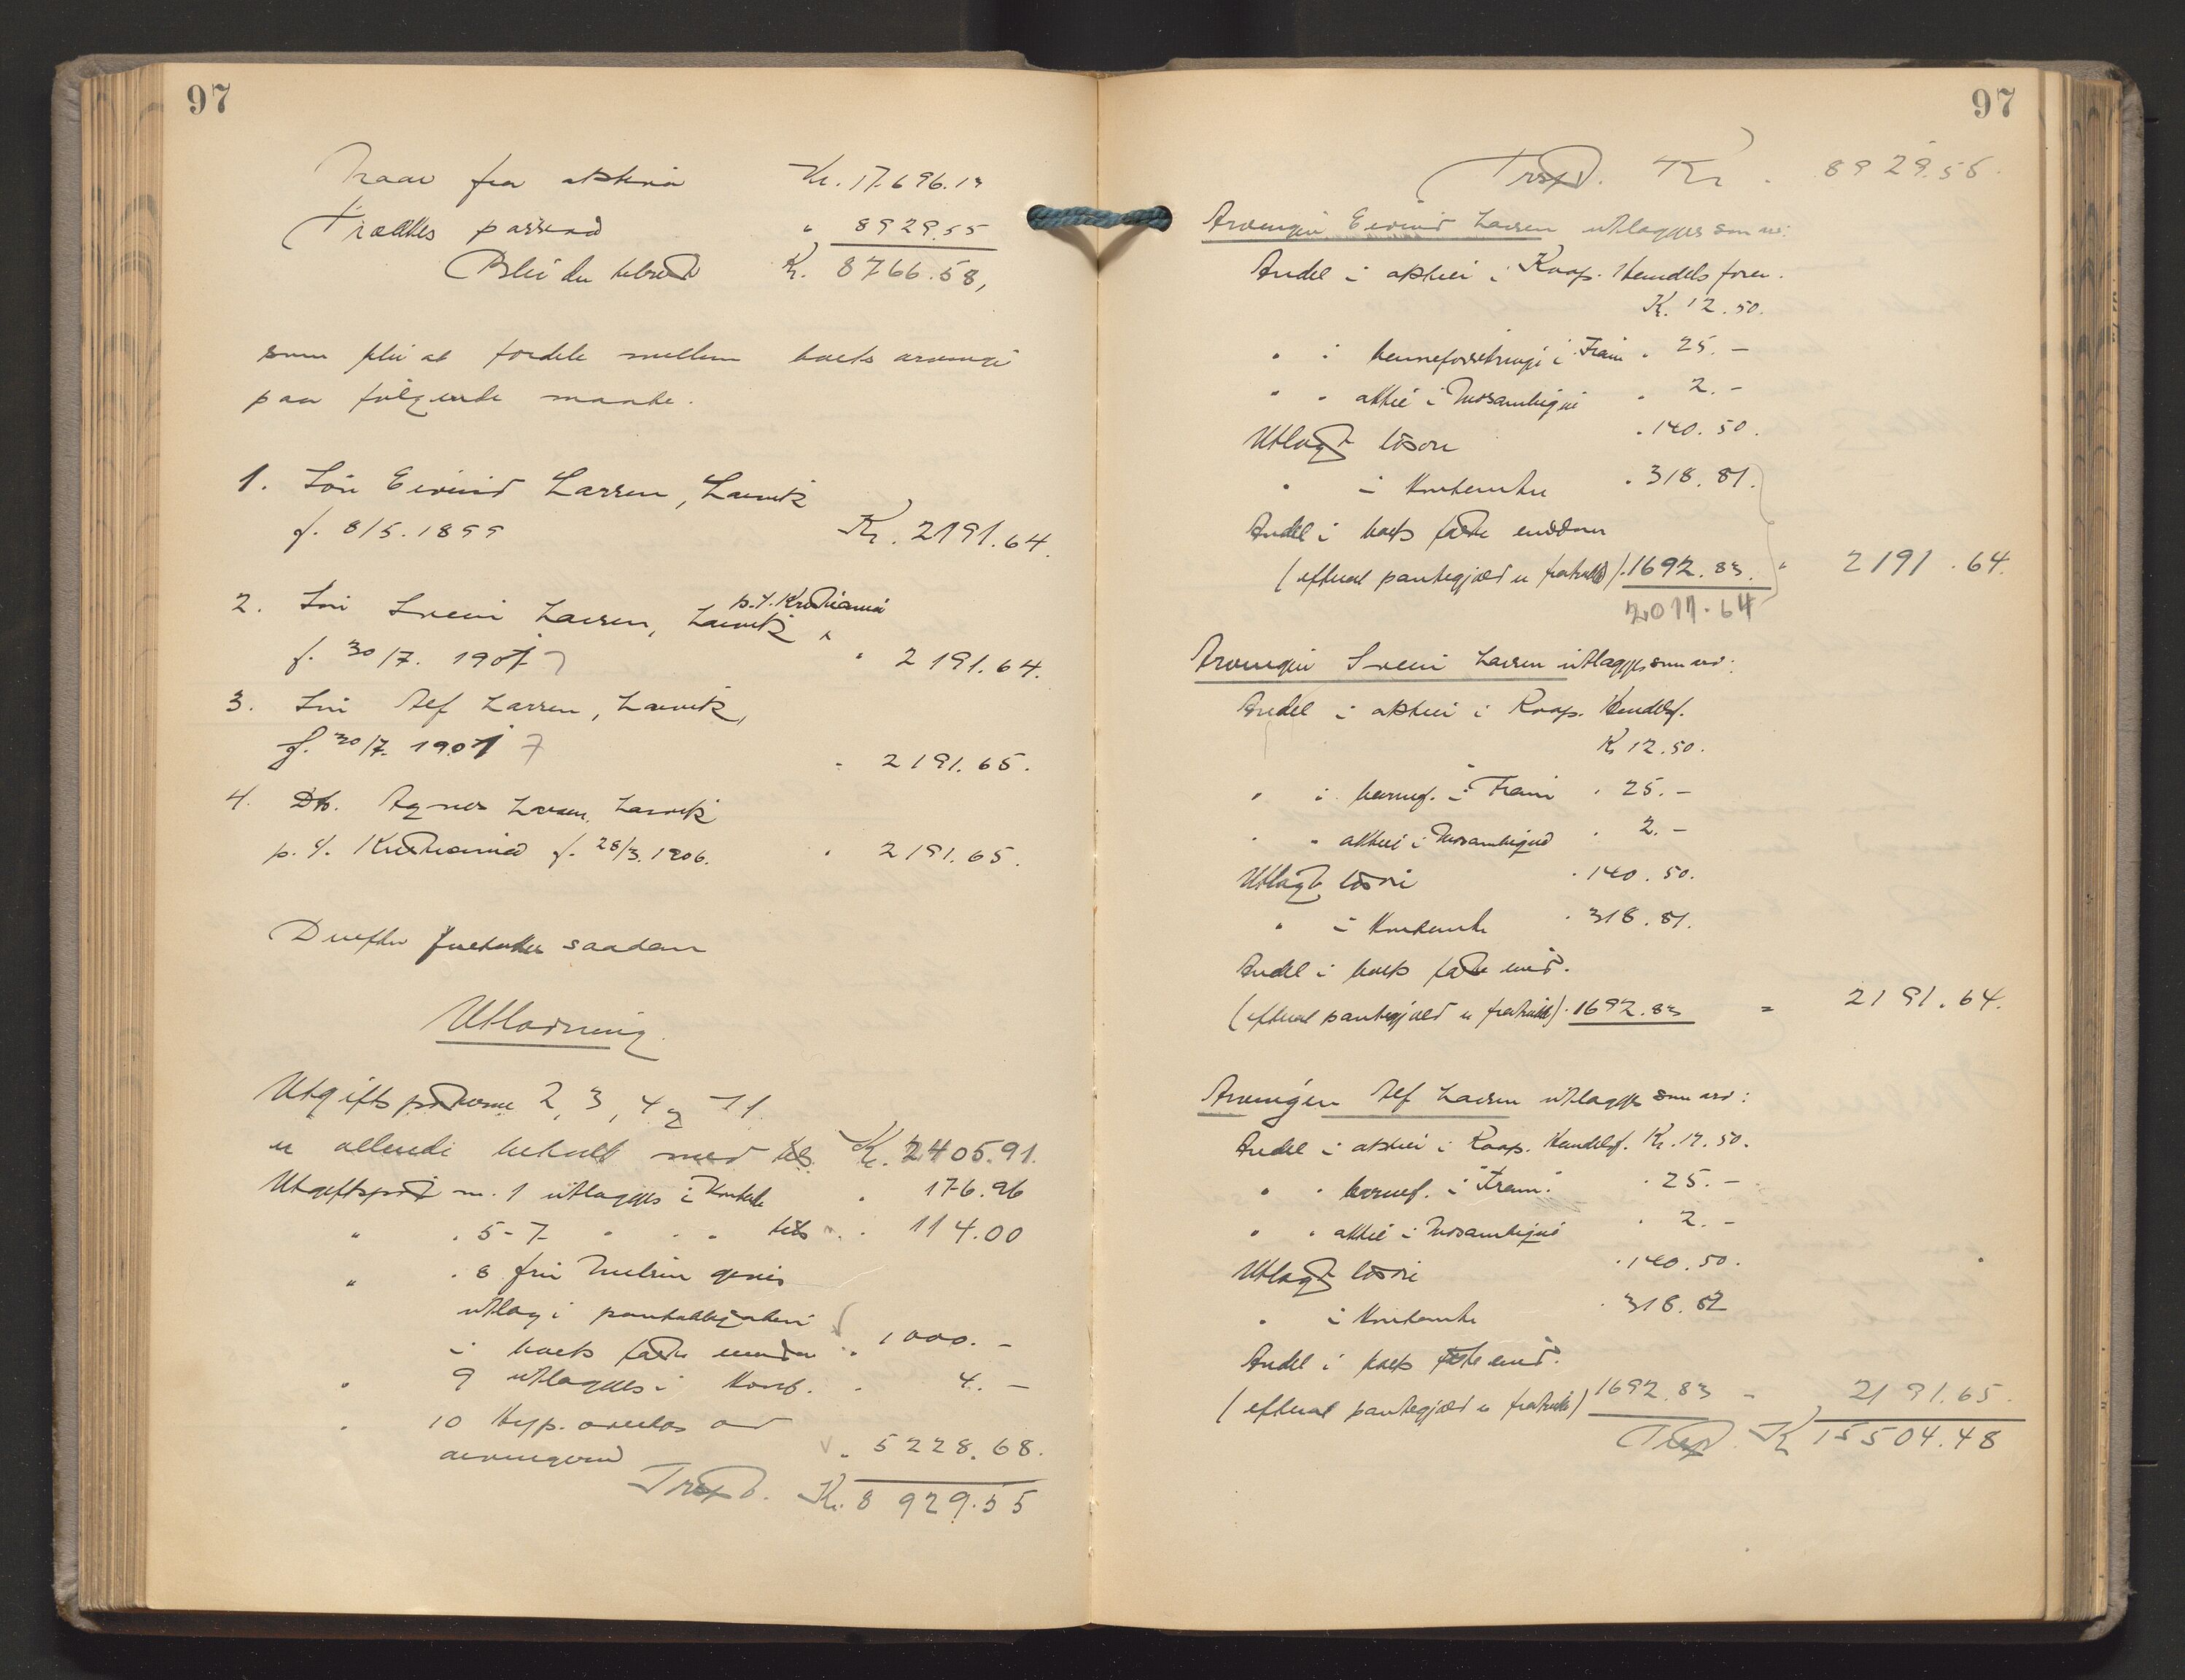 97
Naar fra aktiva Kr. 17.696.13
Trækkes passiva " 8929.55
Blir der tilrest Kr. 8766.58,
som blir at fordele mellem boets arvinger
paa følgende maate.
1. Søn Eivind Larsen, Larvik
f. 8/5.1899 Kr. 2191.64.
p.t. Kristiania
2. Søn Svein Larsen, Larvik
f. 30/7. 1907 7 " 2191.64.
3. Søn Alf Larsen, Larvik,
f. 30/7. 1907 7 " 2191.65.
4. Dt. Agnes Larsen, Larvik
p.t. Kristiania f. 28/3. 1906. " 2191.65.
Derefter foretokes saadan
Utlodning.
Utgiftsposterne 2, 3, 4 og 11
er allerede betalt med tils. Kr. 2405.91.
Utgiftspost nr. 1 utlægges i Kontant " 176.96
" " 5-7 " " " tils " 114.00
" " 8 fru Nielsen gives
utlæg i pantobligation
i boets faste eiendom " 1000.-
" 9 utlægges i Kont. " 4.-
" 10 Hyp. overtas av
arvingerne " 5228.68.
Transp. Kr. 8929.55
97
Transp. Kr. 8929.55.
Arvingen Eivind Larsen utlægges som arv:
Andel i aktier i Koop. Handelsforen.
Kr. 12.50.
" i barneforsikring i Fram " 25.-
" " aktie i Mosambique " 2.-
Utlagt løsøre " 140.50.
" i Kontanter " 318.81.
Andel i boets faste eiendom
(eftersat pantegjæld er fratrukket) " 1692.83. " 2191.64.
2011.64
Arvingen Svein Larsen utlægges som arv:
Andel i aktier i Koop. Handelsf.
Kr 12.50.
" i barnef. i Fram " 25.-
" " aktie i Mosambique " 2.-
Utlagt løsøre " 140.50.
" i Kontante " 318.81.
Andel i boets faste eiend.
(eftersat pantegjæld er fratrukket) " 1692.83 = 2191.64.
Arvingen Alf Larsen utlægges som arv:
Andel i aktier i Koop. Handelsf. Kr. 12.50.
" " barnef. i "Fram" " 25.-
" " aktie i Mosambique " 2.-
Utlagt løsøre " 140.50.
" i Kontante " 318.82
Andel i boets faste eiend.
(eftersat pantegjæld er fratrukket) 1692.83 - 2191.65.
Transp. Kr 15504.48